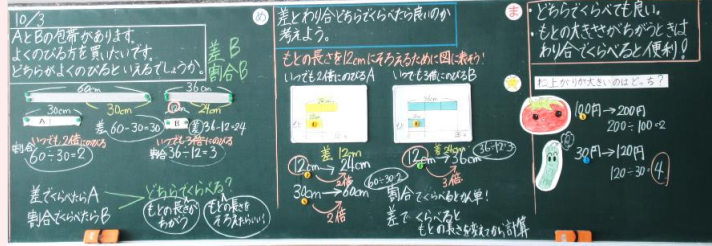 10/3
AとBの包帯があります。
よくのびる方を買いたいです。
どちらがよくのびるといえるでしょうか。
差B
割合B
60cm
30cm
30cm
A
いつでも2倍にのびる
割合
60÷30=2
差 60-30=30
36cm
12cm
24cm
B
差 36-12=24
いつでも3倍にのびる
割合 36÷12=3
差でくらべたらA
割合でくらべたらB
どちらでくらべる?
もとの長さが
ちがう
もとの長さを
そろえたらいい!
め
差とわり合どちらでくらべたら良いのか
考えよう。
もとの長さを12cmにそろえるために図に表そう!
いつでも2倍にのびるA
いつでも3倍にのびるB
差12cm
12cm→24cm
2倍
30cm→60cm
2倍
60÷30=2
差24cm
12cm→36cm
3倍
36÷12=3
割合でくらべるとかん単!
差でくらべると
もとの長さを考えてから計算
ま
・どちらでくらべても良い。
・もとの大きさがちがうときは
わり合でくらべると便利!
ね上がりが大きいのはどっち?
100円→200円
200÷100=2
30円→120円
120÷30=4